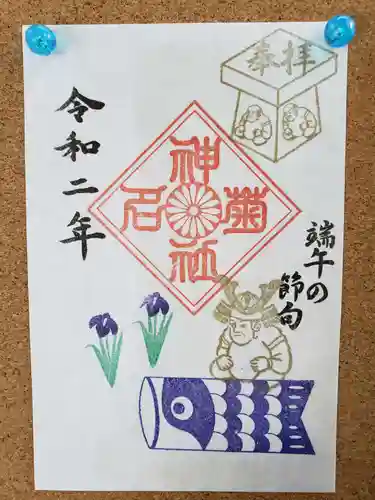 奉拝
菊名
神社
端午の
節句
令和二年